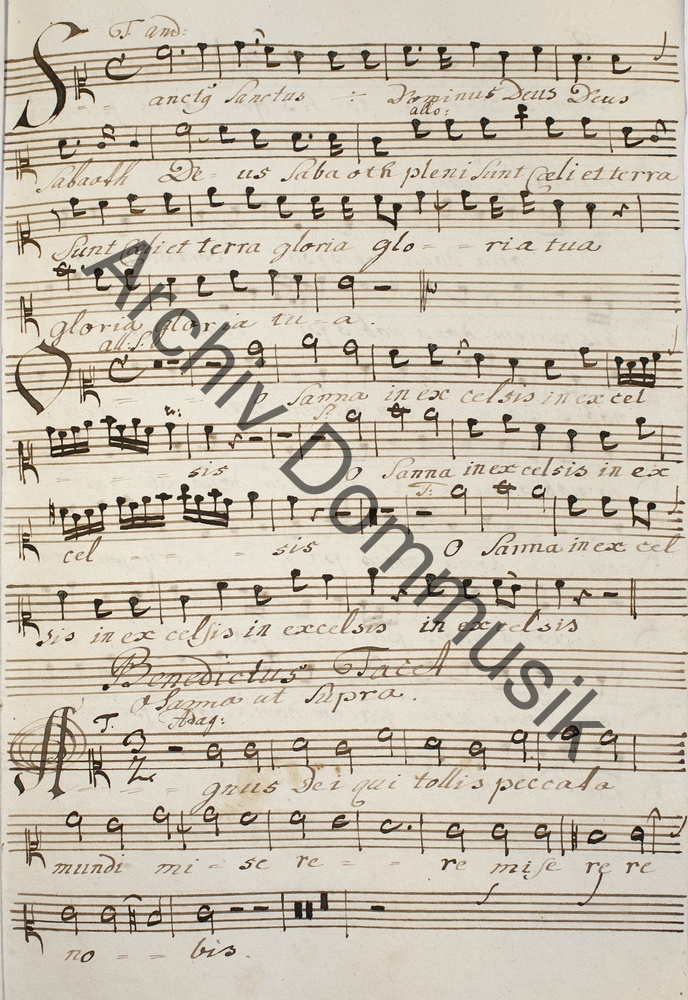 T. and:
Sanctg Sanctus ÷ Dominus Deus Deus
allo:
Sabaoth De - us Sabaoth pleni sunt Cæli et terra
Sunt Cæli et terra gloria glo - - ria tua
gloria gloria tu - a.
O - - O Sanna in ex celsis in ex cel
tr:
- - - sis O Sanna in excelsis in ex
T:
cel - - - sis O Sanna in ex cel
sis in ex celsis in excelsis in excelsis
Benedictus Tacet
O Sanna ut Supra.
T. Adag:
3/2
A - - gnus Dei qui tollis peccata
mundi mi - se re - - re mise re re
no - - bis.
Archiv Dommusik